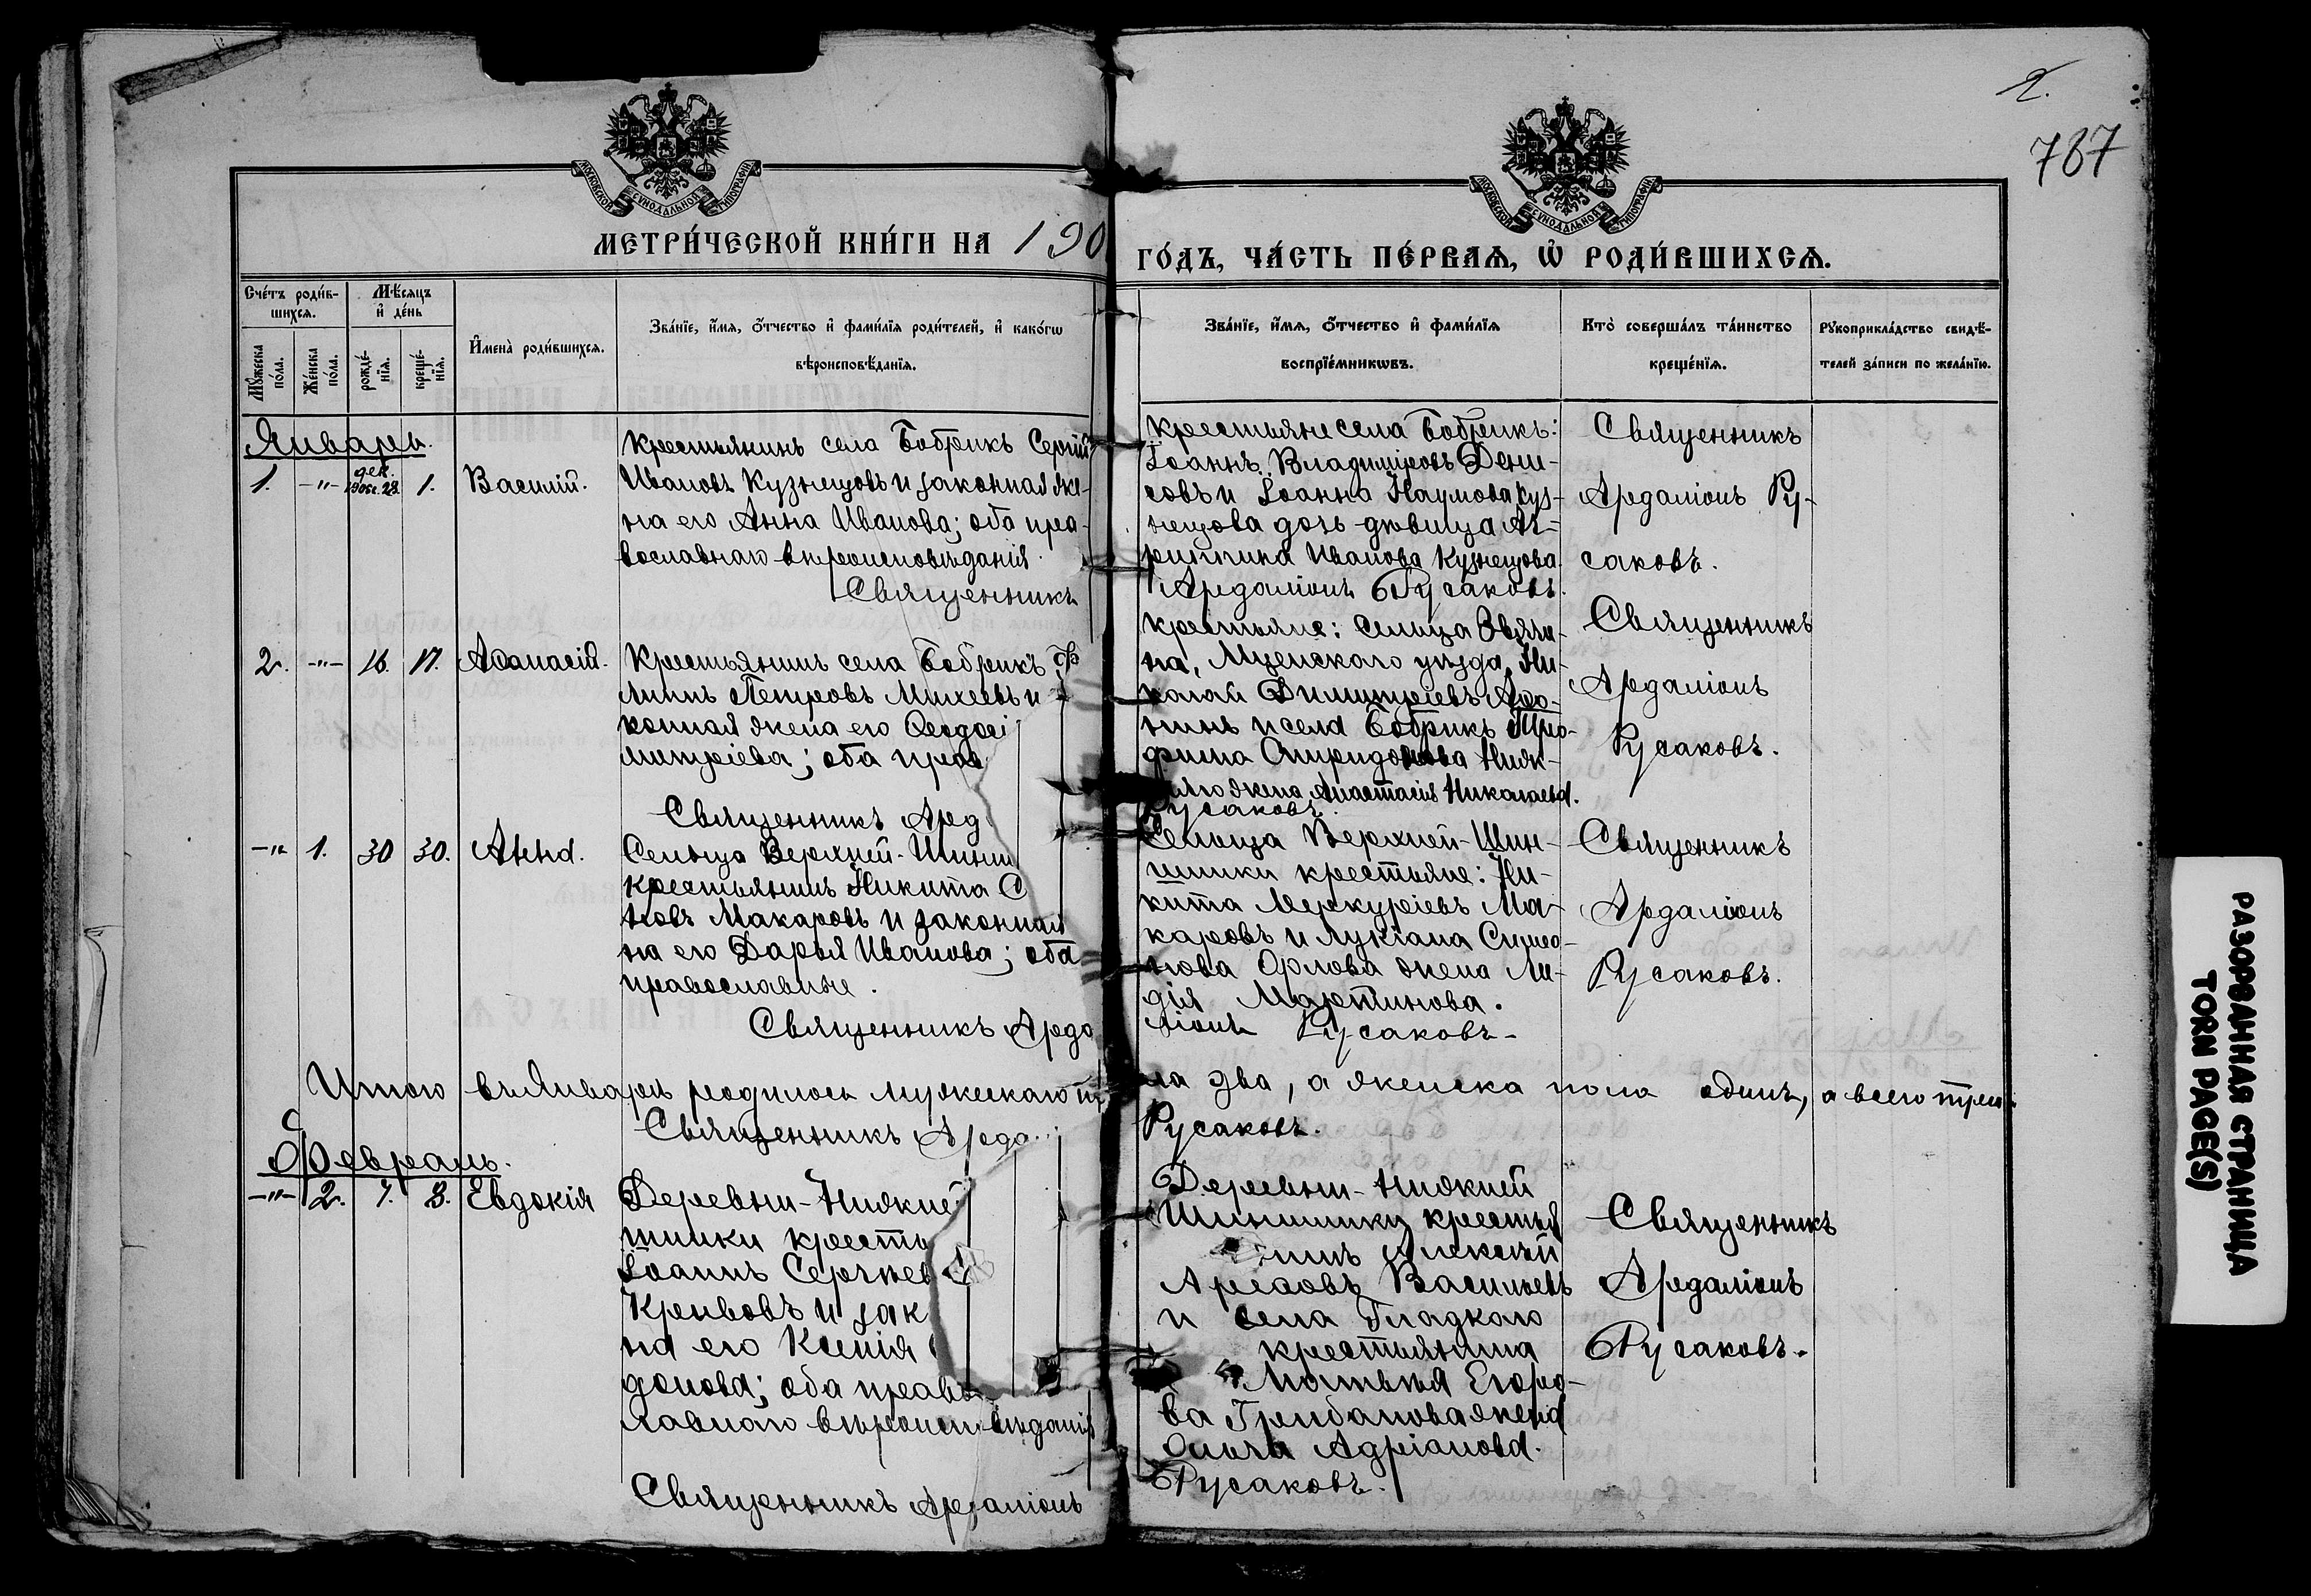 2.
787
МОСКОВСКОЙ СѴНОДАЛЬНОЙ ТИПОГРАФІИ
МОСКОВСКОЙ СѴНОДАЛЬНОЙ ТИПОГРАФІИ
МЕТРИ́ЧЕСКОЙ КНИ́ГИ НА 190
ГО́ДЪ, ЧА́СТЬ ПЕ́РВАѦ, Ѡ҆ РОДИ́ВШИХСѦ.
Сче́тъ роди́в-
шихсѧ.
Мѣ́сѧцъ
и҆ де́нь
Мꙋ́жеска
по́ла.
Же́нска
по́ла.
рожде́-
нїѧ.
креще́-
нїѧ.
И҆мена̀ роди́вшихсѧ.
Зва́нїе, и҆́мѧ, ѻ҆́тчество и҆ фами́лїѧ роди́телей, и҆ како́гѡ
вѣроисповѣ́данїѧ.
Зва́нїе, и҆́мѧ, ѻ҆́тчество и҆ фами́лїѧ
воспрїе́мникѡвъ.
Кто̀ соверша́лъ та́инство
креще́нїѧ.
Рꙋкоприкла́дство свидѣ́-
телей за́писи по жела́нїю.
Январь.
1. -"- дек. 28. 1. Василій.
Крестьянинъ села Бобрикъ Сергій
Ивановъ Кузнецовъ и законная же-
на его Анна Иванова; оба пра-
вославнаго вѣроисповѣданія.
Священникъ
крестьяне села Бобрикъ:
Іоаннъ Владиміровъ Дени-
совъ и Іоанна Наумова Куз-
нецова дочь дѣвица Аг-
рипина Иванова Кузнецова.
Ардаліонъ Русаковъ.
Священникъ
Ардаліонъ Ру-
саковъ.
2. -"- 16. 17. Аѳанасій.
Крестьянинъ села Бобрикъ Ф
липпъ Петровъ Михеевъ и
конная жена его Ѳеодосі
митріева; оба прав
Священникъ Ард
крестьяне: сельца Звяги-
на, Мценскаго уѣзда, Ни-
колай Димитріевъ Аѳо-
нинъ и села Бобрикъ Тро-
фима Спиридонова Ниж-
жена Анастасія Николаева.
Русаковъ.
Священникъ
Ардаліонъ
Русаковъ.
-"- 1. 30 30. Анна.
Сельца Верхней-Шинш
крестьянинъ Никита С
новъ Макаровъ и законная
на его Дарья Иванова; оба
православные.
Священникъ Арда
Сельца Верхней-Шин-
шинки крестьяне: Ни-
кита Меркуріевъ Ма-
каровъ и Лукіана Симео-
нова Орлова жена Ли-
дія Мартинова.
ліонъ Русаковъ.
Священникъ
Ардаліонъ
Русаковъ.
Итого въ Январѣ родилось мужескаго п
ла два, а женска пола одинъ, а всего три.
Священникъ Арда
Русаковъ.
Февраль.
-"- 2. 7. 8. Евдокія
Деревни-Нижней
шинки кресть
Іоаннъ Сергѣев
Кривовъ и зак
на его Ксенія
донова; оба право
лавнаго вѣроисповѣданія
Священникъ Ардаліонъ
Деревни-Нижней
Шиншинки крестья
нинъ Алексѣй
Васильевъ
и села Гладкаго
крестьянина
Матвѣя Егоро-
ва Грибанова жена
Ольга Адріанова.
Русаковъ.
Священникъ
Ардаліонъ
Русаковъ.
РАЗОРВАННАЯ СТРАНИЦА
TORN PAGE(S)